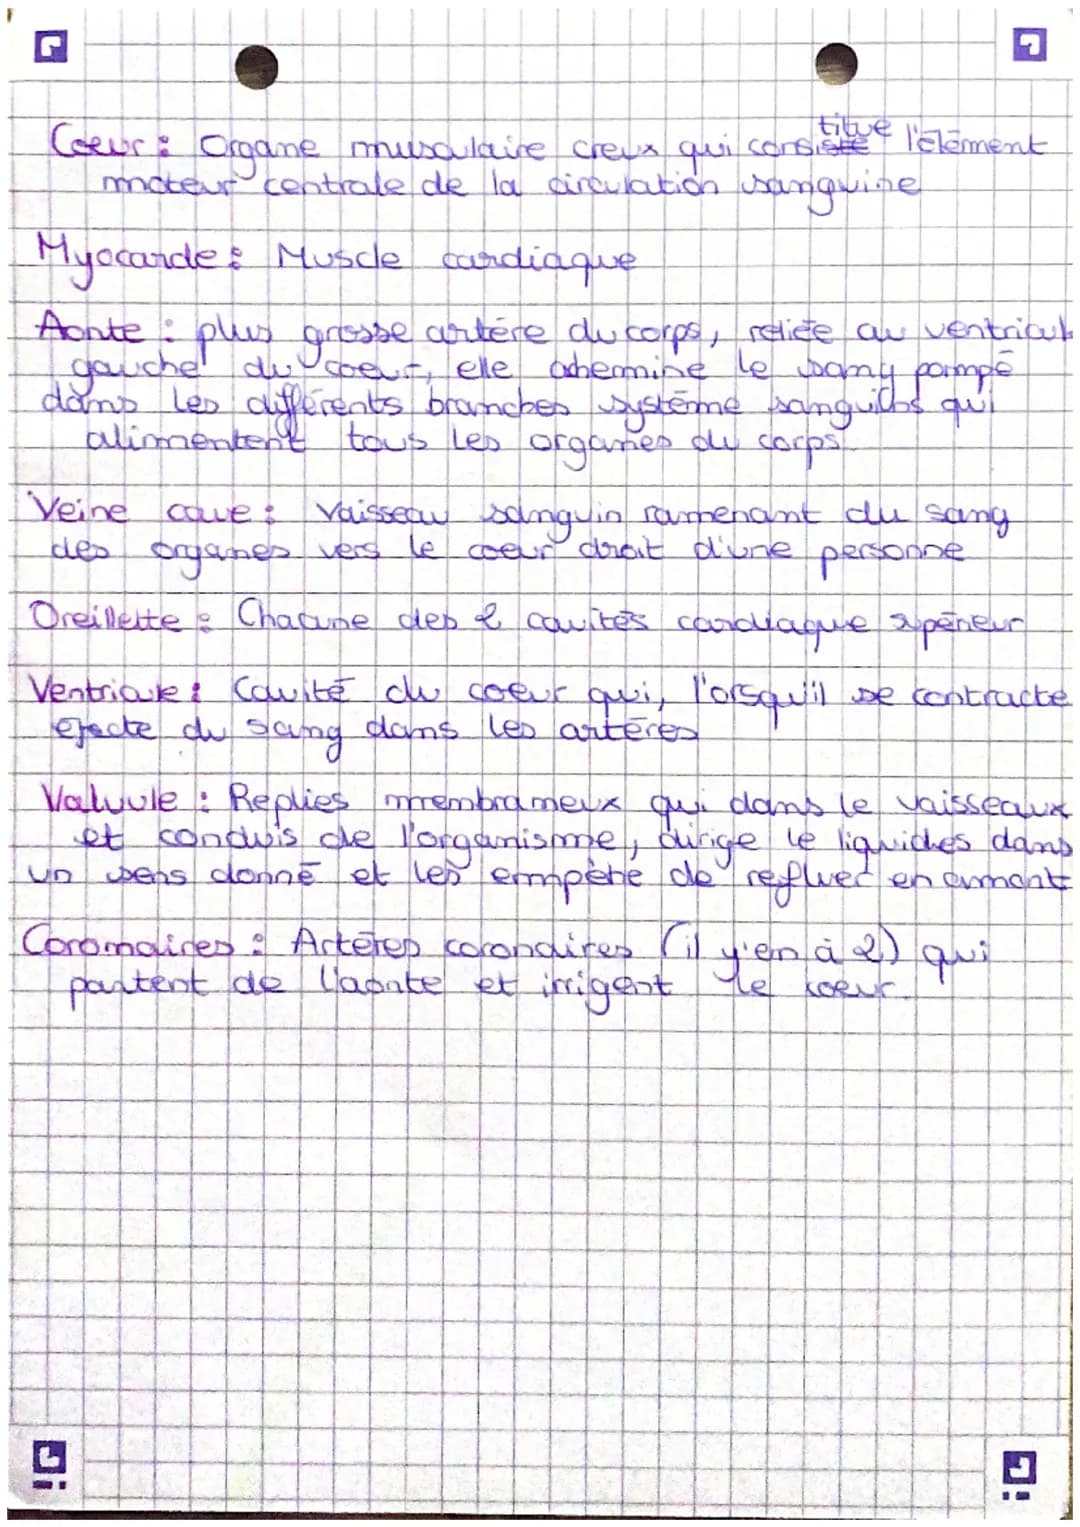 Coeur : Organe musculaire creux qui constitue l'élément
moteur centrale de la circulation sanguine
Myocarde : Muscle cardiaque
Aorte : plus grosse artère du corps, reliée au ventricul
gauche du coeur, elle achermine le sang pompé
dans les différents branches système sanguins qui
alimentent tous les organes du corps.
Veine cave : Vaisseau sanguin ramenant du sang
des organes vers le coeur droit d'une personne
Oreillette : Chacune des 2 cavités cardiaque supérieur
Ventricule : Cavité du coeur qui, l'orsqu'il se contracte
éjecte du sang dans les artères
Valvule : Replies membraneux qui dans le vaisseaux
et conduis de l'organisme, dirige le liquides dans
un sens donné et les empêche de refluer en amont
Coronaires : Artères coronaires (il y'en à 2) qui
partent de l'aorte et irrigent le coeur.